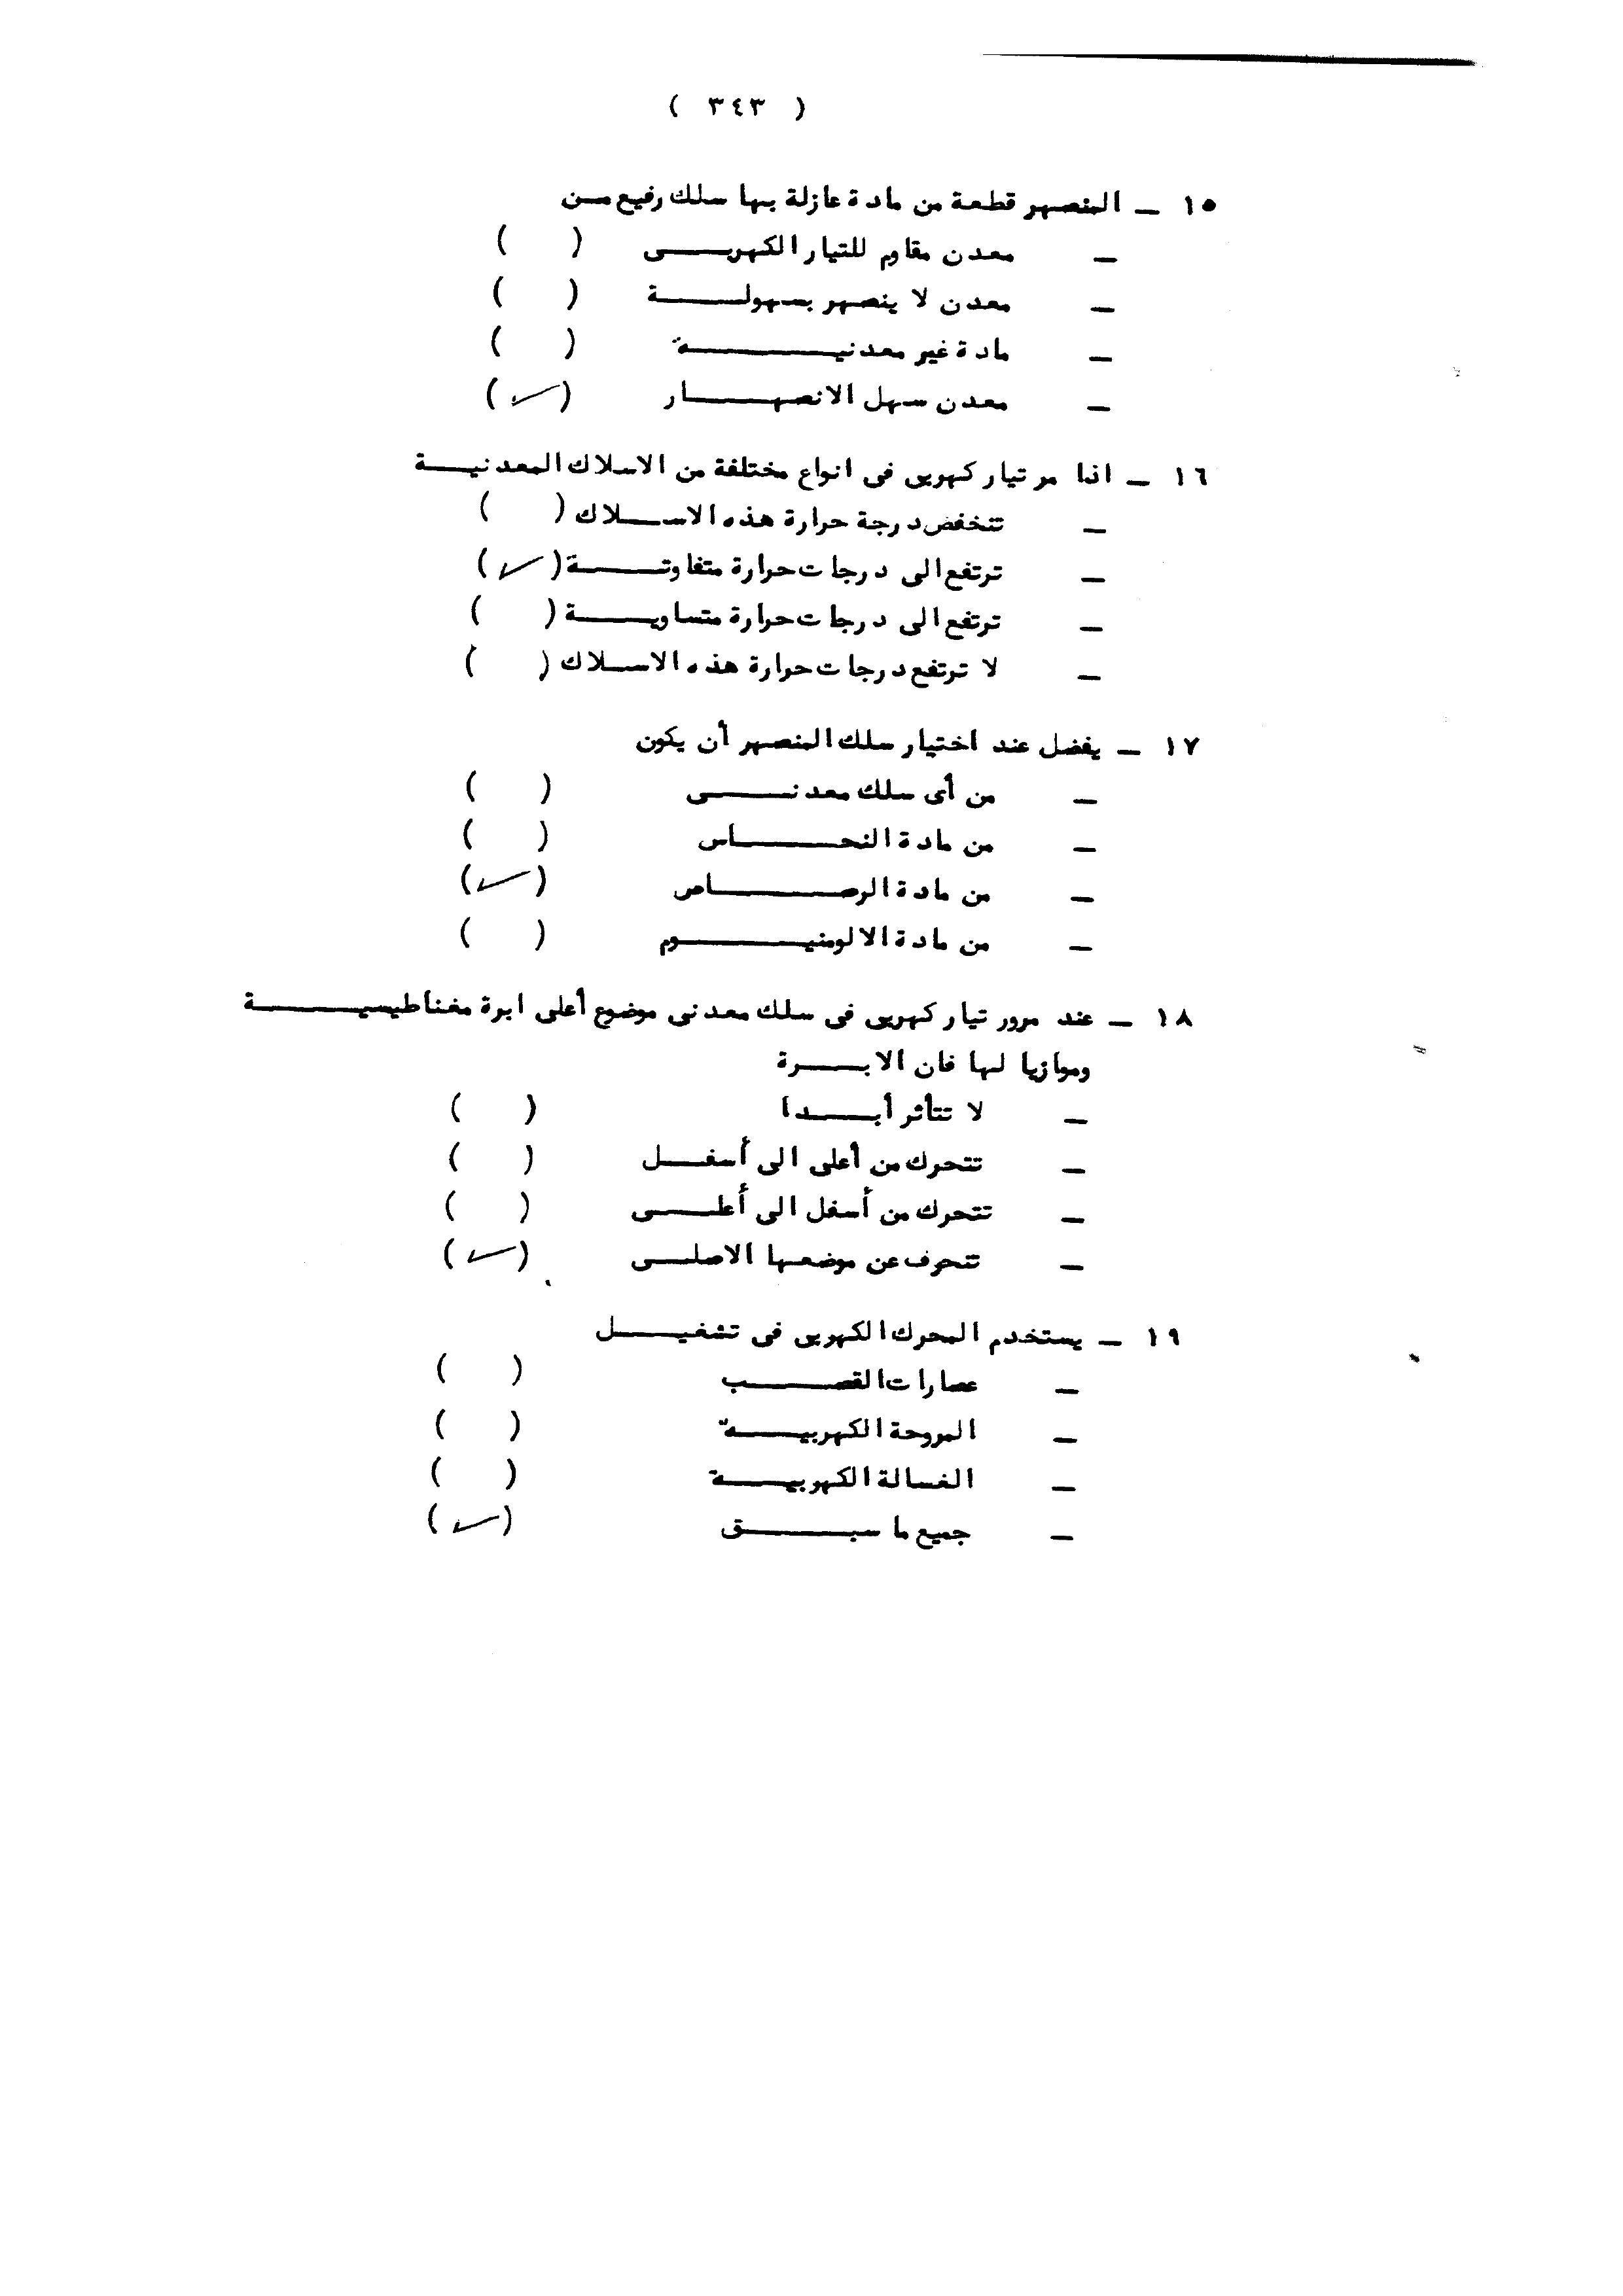 ( ٣٤٣ )
١٥ ـ المنصهر قطعة من مادة عازلة بها سلك رفيع من
ـ معدن مقاوم للتيار الكهربى ( )
ـ معدن لا ينصهر بسهولة ( )
ـ مادة غير معدنية ( )
ـ معدن سهل الانصهار (✓)
١٦ ـ اذا مر تيار كهربى فى انواع مختلفة من الاسلاك المعدنية
ـ تنخفض درجة حرارة هذه الاسلاك ( )
ـ ترتفع الى درجات حرارة متفاوتة (✓)
ـ ترتفع الى درجات حرارة متساوية ( )
ـ لا ترتفع درجات حرارة هذه الاسلاك ( )
١٧ ـ يفضل عند اختيار سلك المنصهر أن يكون
ـ من أى سلك معدنى ( )
ـ من مادة النحاس ( )
ـ من مادة الرصاص (✓)
ـ من مادة الالومنيوم ( )
١٨ ـ عند مرور تيار كهربى فى سلك معدنى موضوع أعلى ابرة مغناطيسية
وموازيا لها فان الابرة
ـ لا تتأثر أبدا ( )
ـ تتحرك من أعلى الى أسفل ( )
ـ تتحرك من أسفل الى أعلى ( )
ـ تنحرف عن موضعها الاصلى (✓)
١٩ ـ يستخدم المحرك الكهربى فى تشغيل
ـ عصارات القصب ( )
ـ المروحة الكهربية ( )
ـ الغسالة الكهربية ( )
ـ جميع ما سبق (✓)